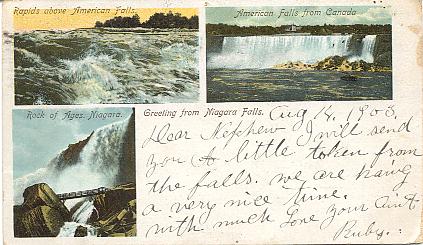 Rapids above American Falls.
American Falls from Canada
Rock of Ages. Niagara.
Greeting from Niagara Falls.
Aug 14, 1903.
Dear Nephew I will send
you a little token from
the falls. we are having
a very nice time.
with much love your Aint
Ruby.